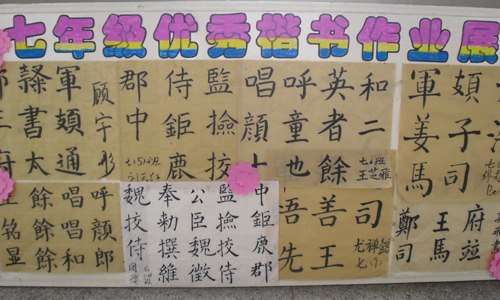 七年级优秀楷书作业展
軍頻通
隸書太
監撿挍
侍鉅鹿
郡中
和二
英者餘
呼童也
唱顔
七八班
王芝雅
頻子司
軍姜馬
呼顔郎
唱唱和
餘餘餘
中鉅鹿郡
監撿挍侍
公臣魏徵
奉勅撰維
魏挍侍
司
善王
吾先
王馬
鄭司